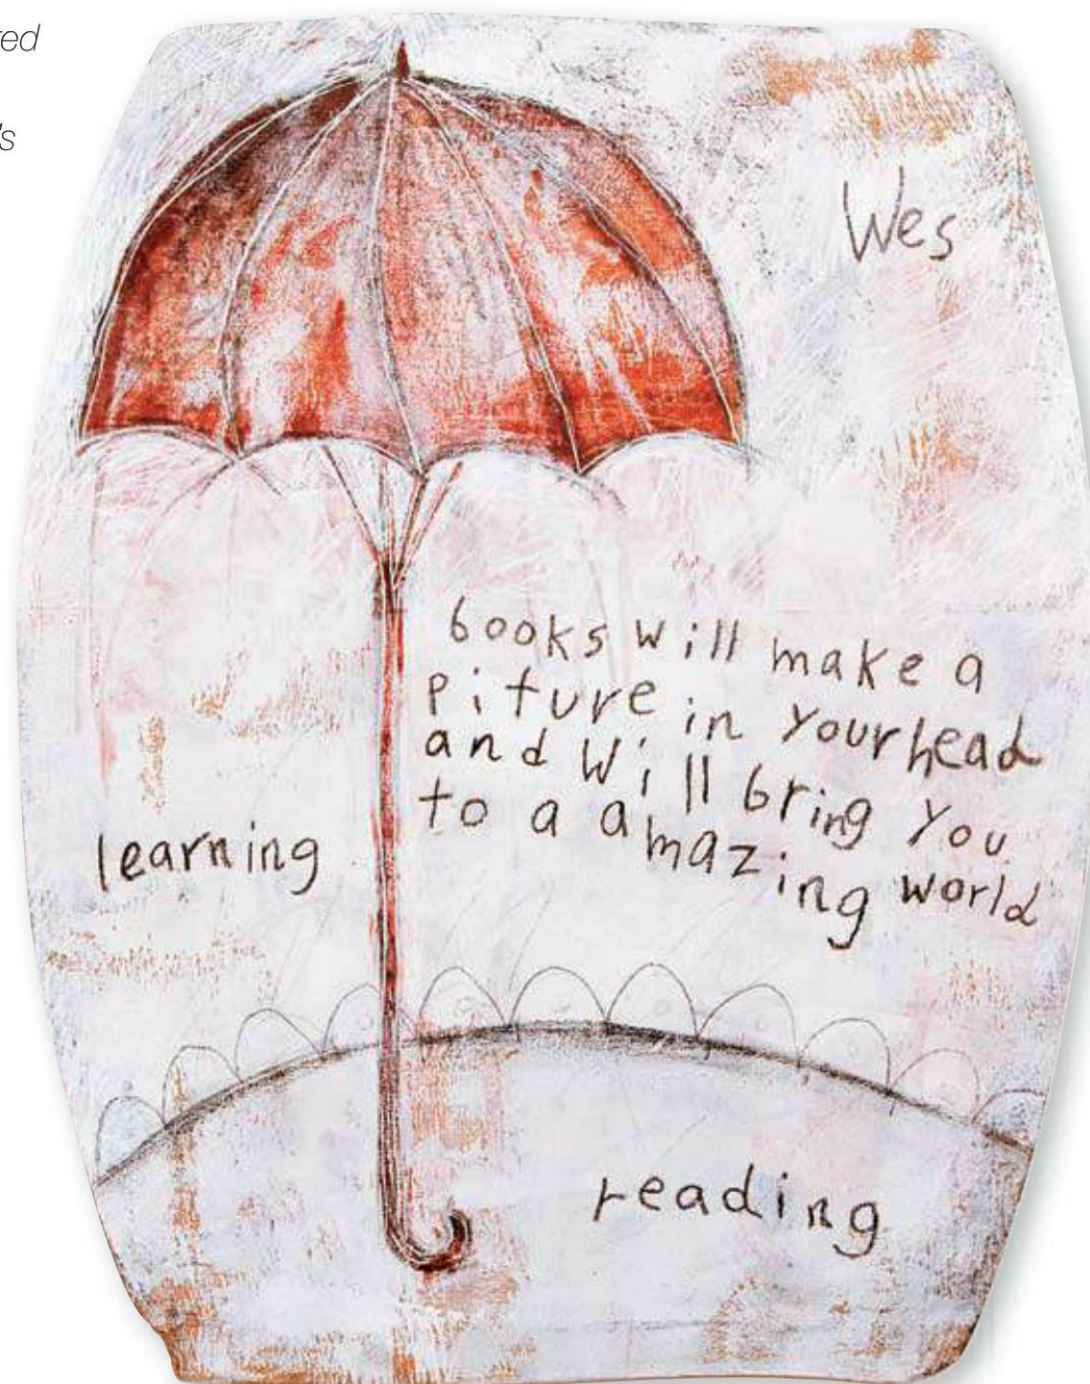 Wes
books will make a
piture in your head
and will bring you
to a amazing world
learning
reading